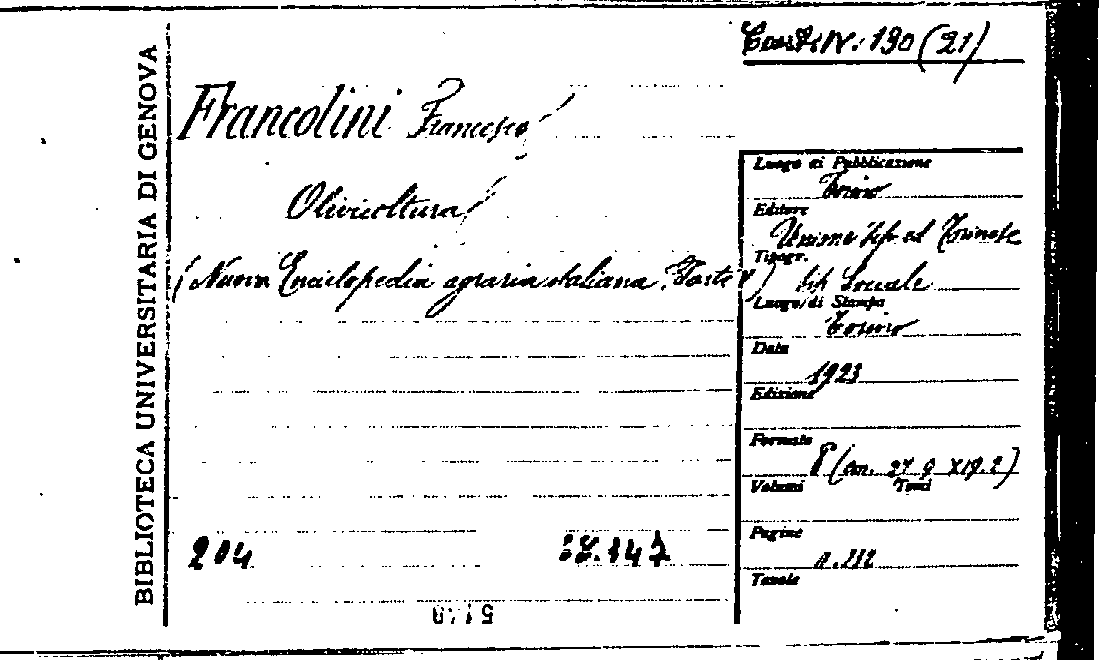 BIBLIOTECA UNIVERSITARIA DI GENOVA
190 (21)
Francolini Francesco
Olivicoltura
(Nuova Enciclopedia agraria italiana. Parte V)
Luogo di Pubblicazione
Torino
Editore
Unione tip. ed. Torinese
Tipogr.
tip. Sociale
Luogo di Stampa
Torino
Data
1923
Edizione
Formato
8 (cm. 27.9 X 19.2)
Volumi Tomi
Pagine
Tavole
204